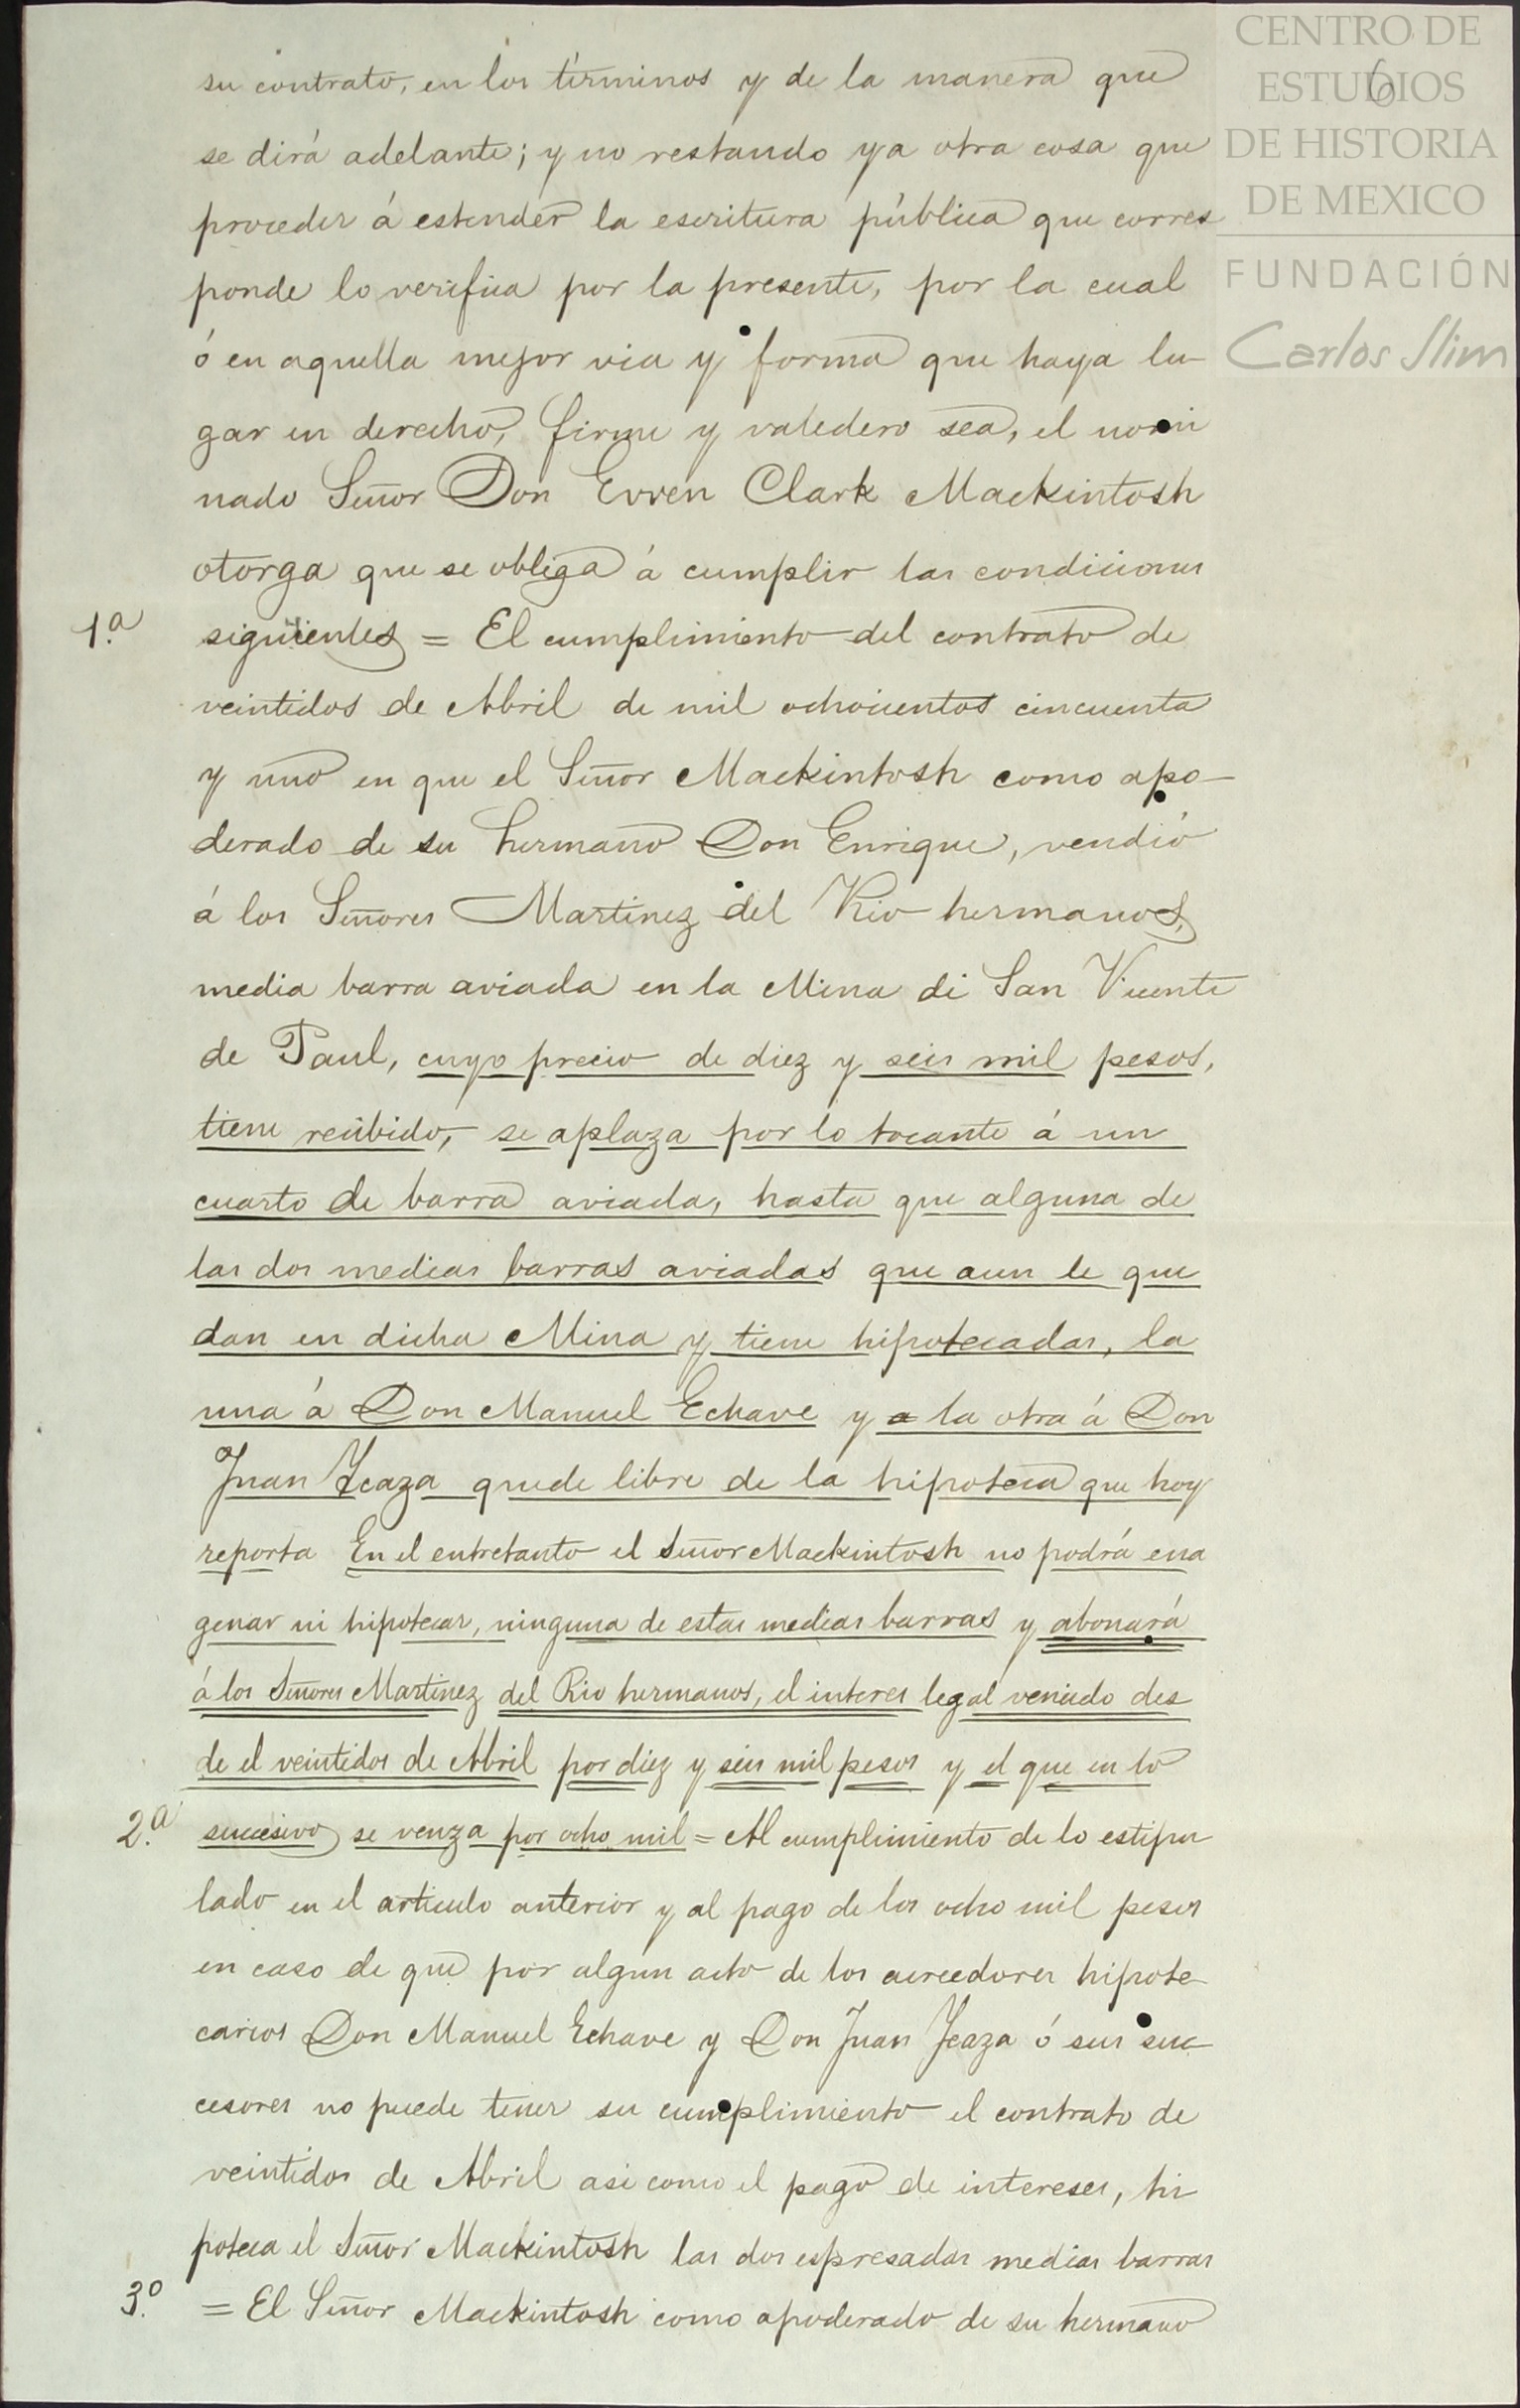 CENTRO DE
ESTUDIOS
DE HISTORIA
DE MEXICO
FUNDACIÓN
Carlos Slim
6
su contrato, en los términos y de la manera que
se dirá adelante; y no restando ya otra cosa que
proceder á estender la escritura pública que corres
ponde lo verifica por la presente, por la cual
ó en aquella mejor via y forma que haya lu-
gar en derecho, firme y valedero sea, el nomi
nado Señor Don Evven Clark Mackintosh
otorga que se obliga á cumplir las condiciones
1.a siguientes = El cumplimiento del contrato de
veintidos de Abril de mil ochocientos cincuenta
y uno en que el Señor Mackintosh como apo-
derado de su hermano Don Enrique, vendió
á los Señores Martinez del Rio hermanos,
media barra aviada en la Mina de San Vicente
de Paul, cuyo precio de diez y seis mil pesos,
tiene recibido, se aplaza por lo tocante á un
cuarto de barra aviada, hasta que alguna de
las dos medias barras aviadas que aun le que
dan en dicha Mina y tiene hipotecadas, la
una á Don Manuel Echave y a la otra á Don
Juan Ycaza quede libre de la hipoteca que hoy
reporta En el entretanto el Señor Mackintosh no podrá ena
genar ni hipotecar, ninguna de estas medias barras y abonará
á los Señores Martinez del Rio hermanos, el interes legal vencido des
de el veintidos de Abril por diez y seis mil pesos y el que en lo
2.a succesivo se venza por ocho mil = Al cumplimiento de lo estipu
lado en el articulo anterior y al pago de los ocho mil pesos
en caso de que por algun acto de los acreedores hipote
carios Don Manuel Echave y Don Juan Ycaza ó sus suc
cesores no puede tener su cumplimiento el contrato de
veintidos de Abril asi como el pago de intereses, hi
poteca el Señor Mackintosh las dos espresadas medias barras
3.o = El Señor Mackintosh como apoderado de su hermano